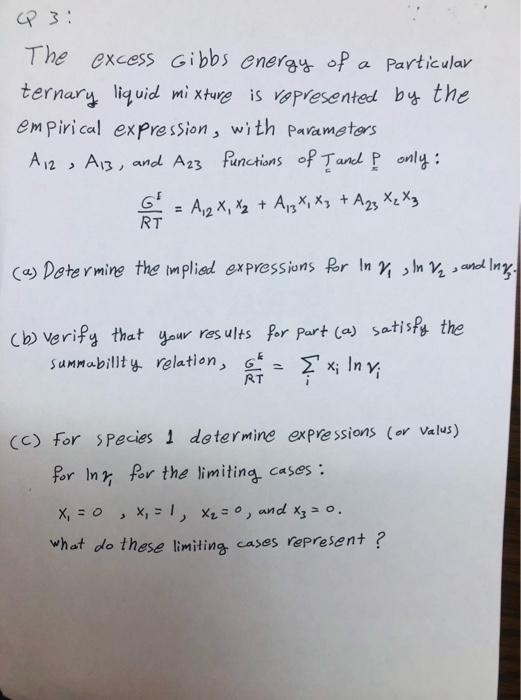 Q 3:
The excess Gibbs energy of a particular
ternary liquid mixture is represented by the
empirical expression, with parameters
A12 , A13, and A23 functions of T and P only:
G^E/RT = A12 x1 x2 + A13 x1 x3 + A23 x2 x3
(a) Determine the implied expressions for ln γ1 , ln γ2 , and ln γ3.
(b) verify that your results for part (a) satisfy the
summabillty relation, G^E/RT = Σ_i xi ln γi
(c) For species 1 determine expressions (or valus)
for ln γ1 for the limiting cases :
x1 = 0 , x1 = 1, x2 = 0, and x3 = 0.
what do these limiting cases represent ?